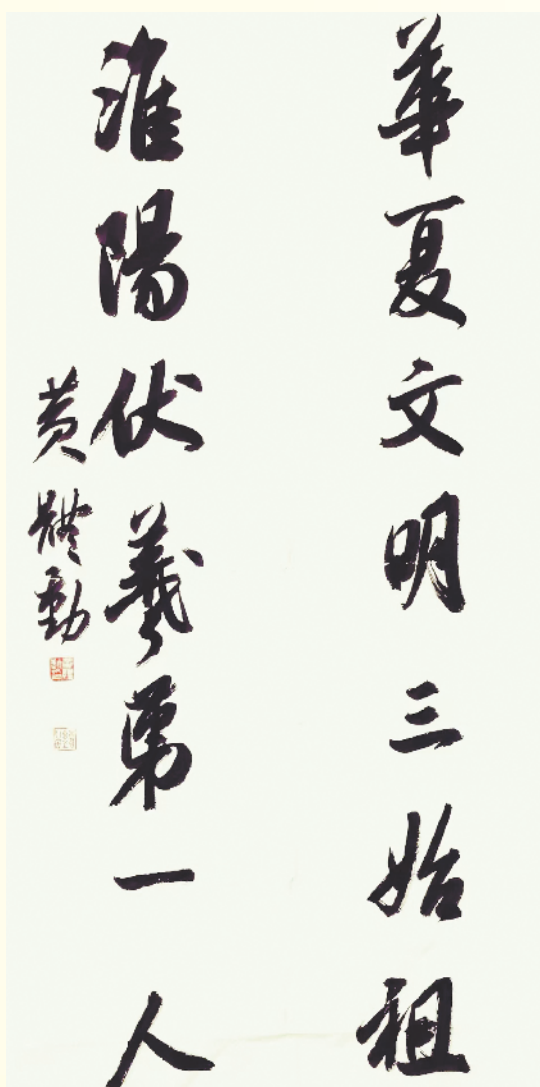 華夏文明三始祖
淮陽伏羲第一人
黄體勳